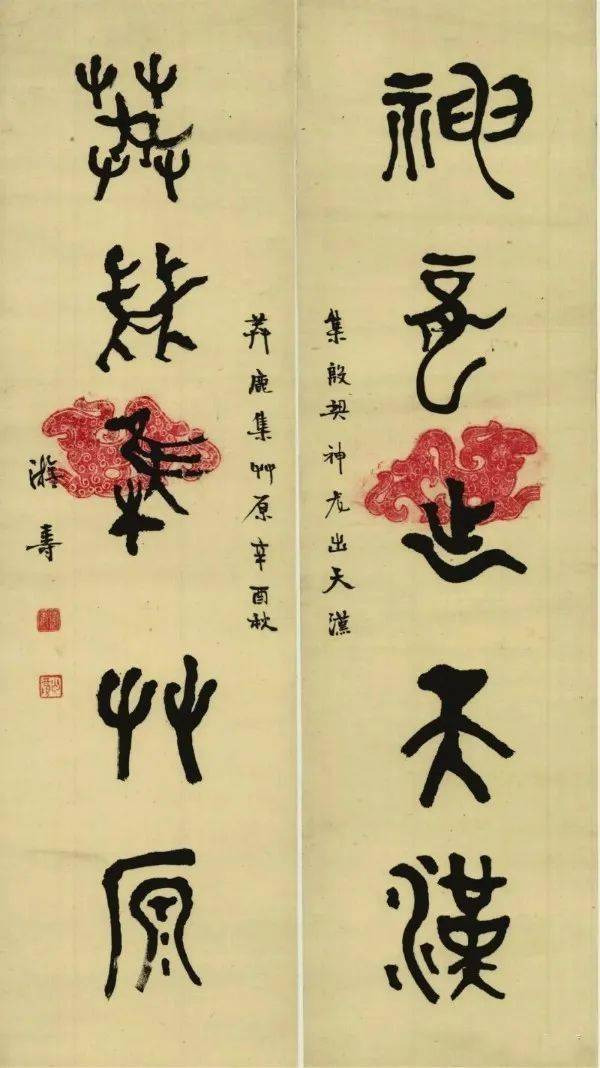 神龍出天漢
集殷契神龙出天漢
莽鹿集艸原
莽鹿集艸原辛酉秋
游寿